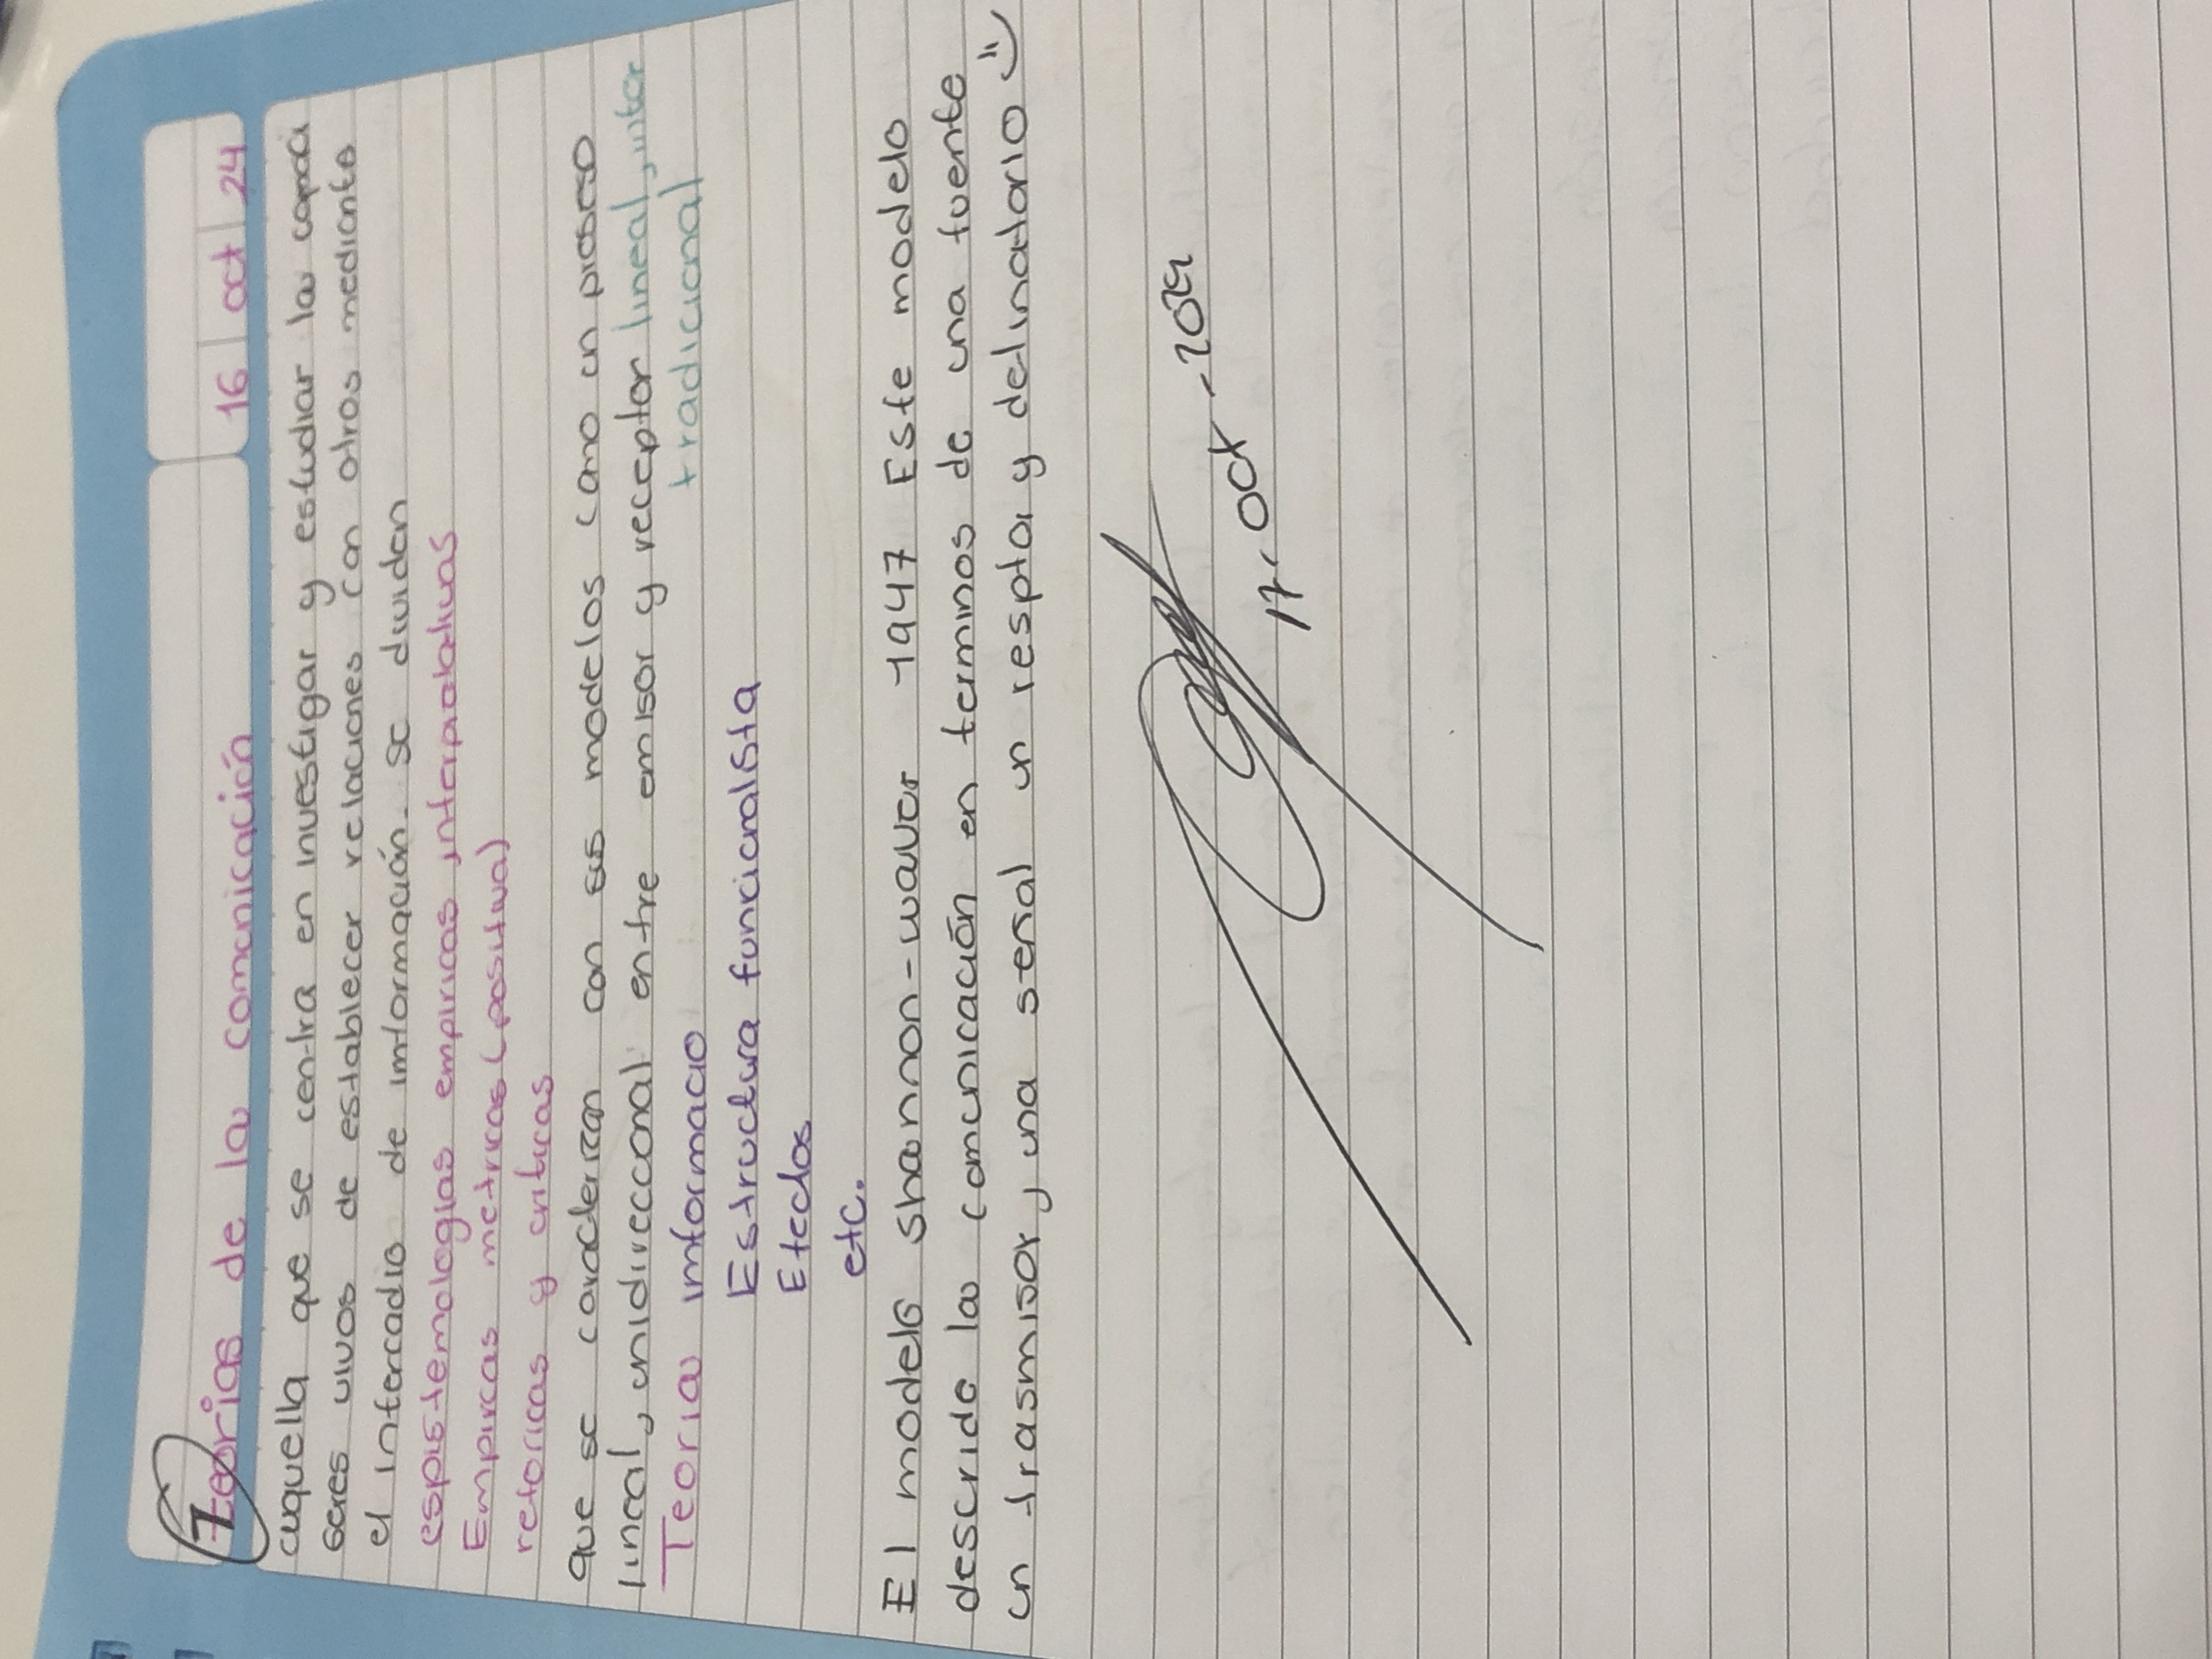 7
teorias de la comunicación 16 oct 24
auquella que se centra en investigar y estudiar la capaci
seres vivos de establecer relaciones con otros mediante
el intercadio de imformación. se dividen
espistemologias empiricas, interpretativas
Empircas metricas (positiva)
retoricas y criticas
que se caracterizan con sus modelos como un proseso
lineal, unidireccional entre emisor y receptor lineal, inter
tradicional
Teoria informacio
Estructura funcionalista
Efectos
etc.
El modelo shannon-waver 1947 Este modelo
descride la comunicación en terminos de una fuente
un trasmisor, una señal un resptor y detinatorio
17, Oct - 2024